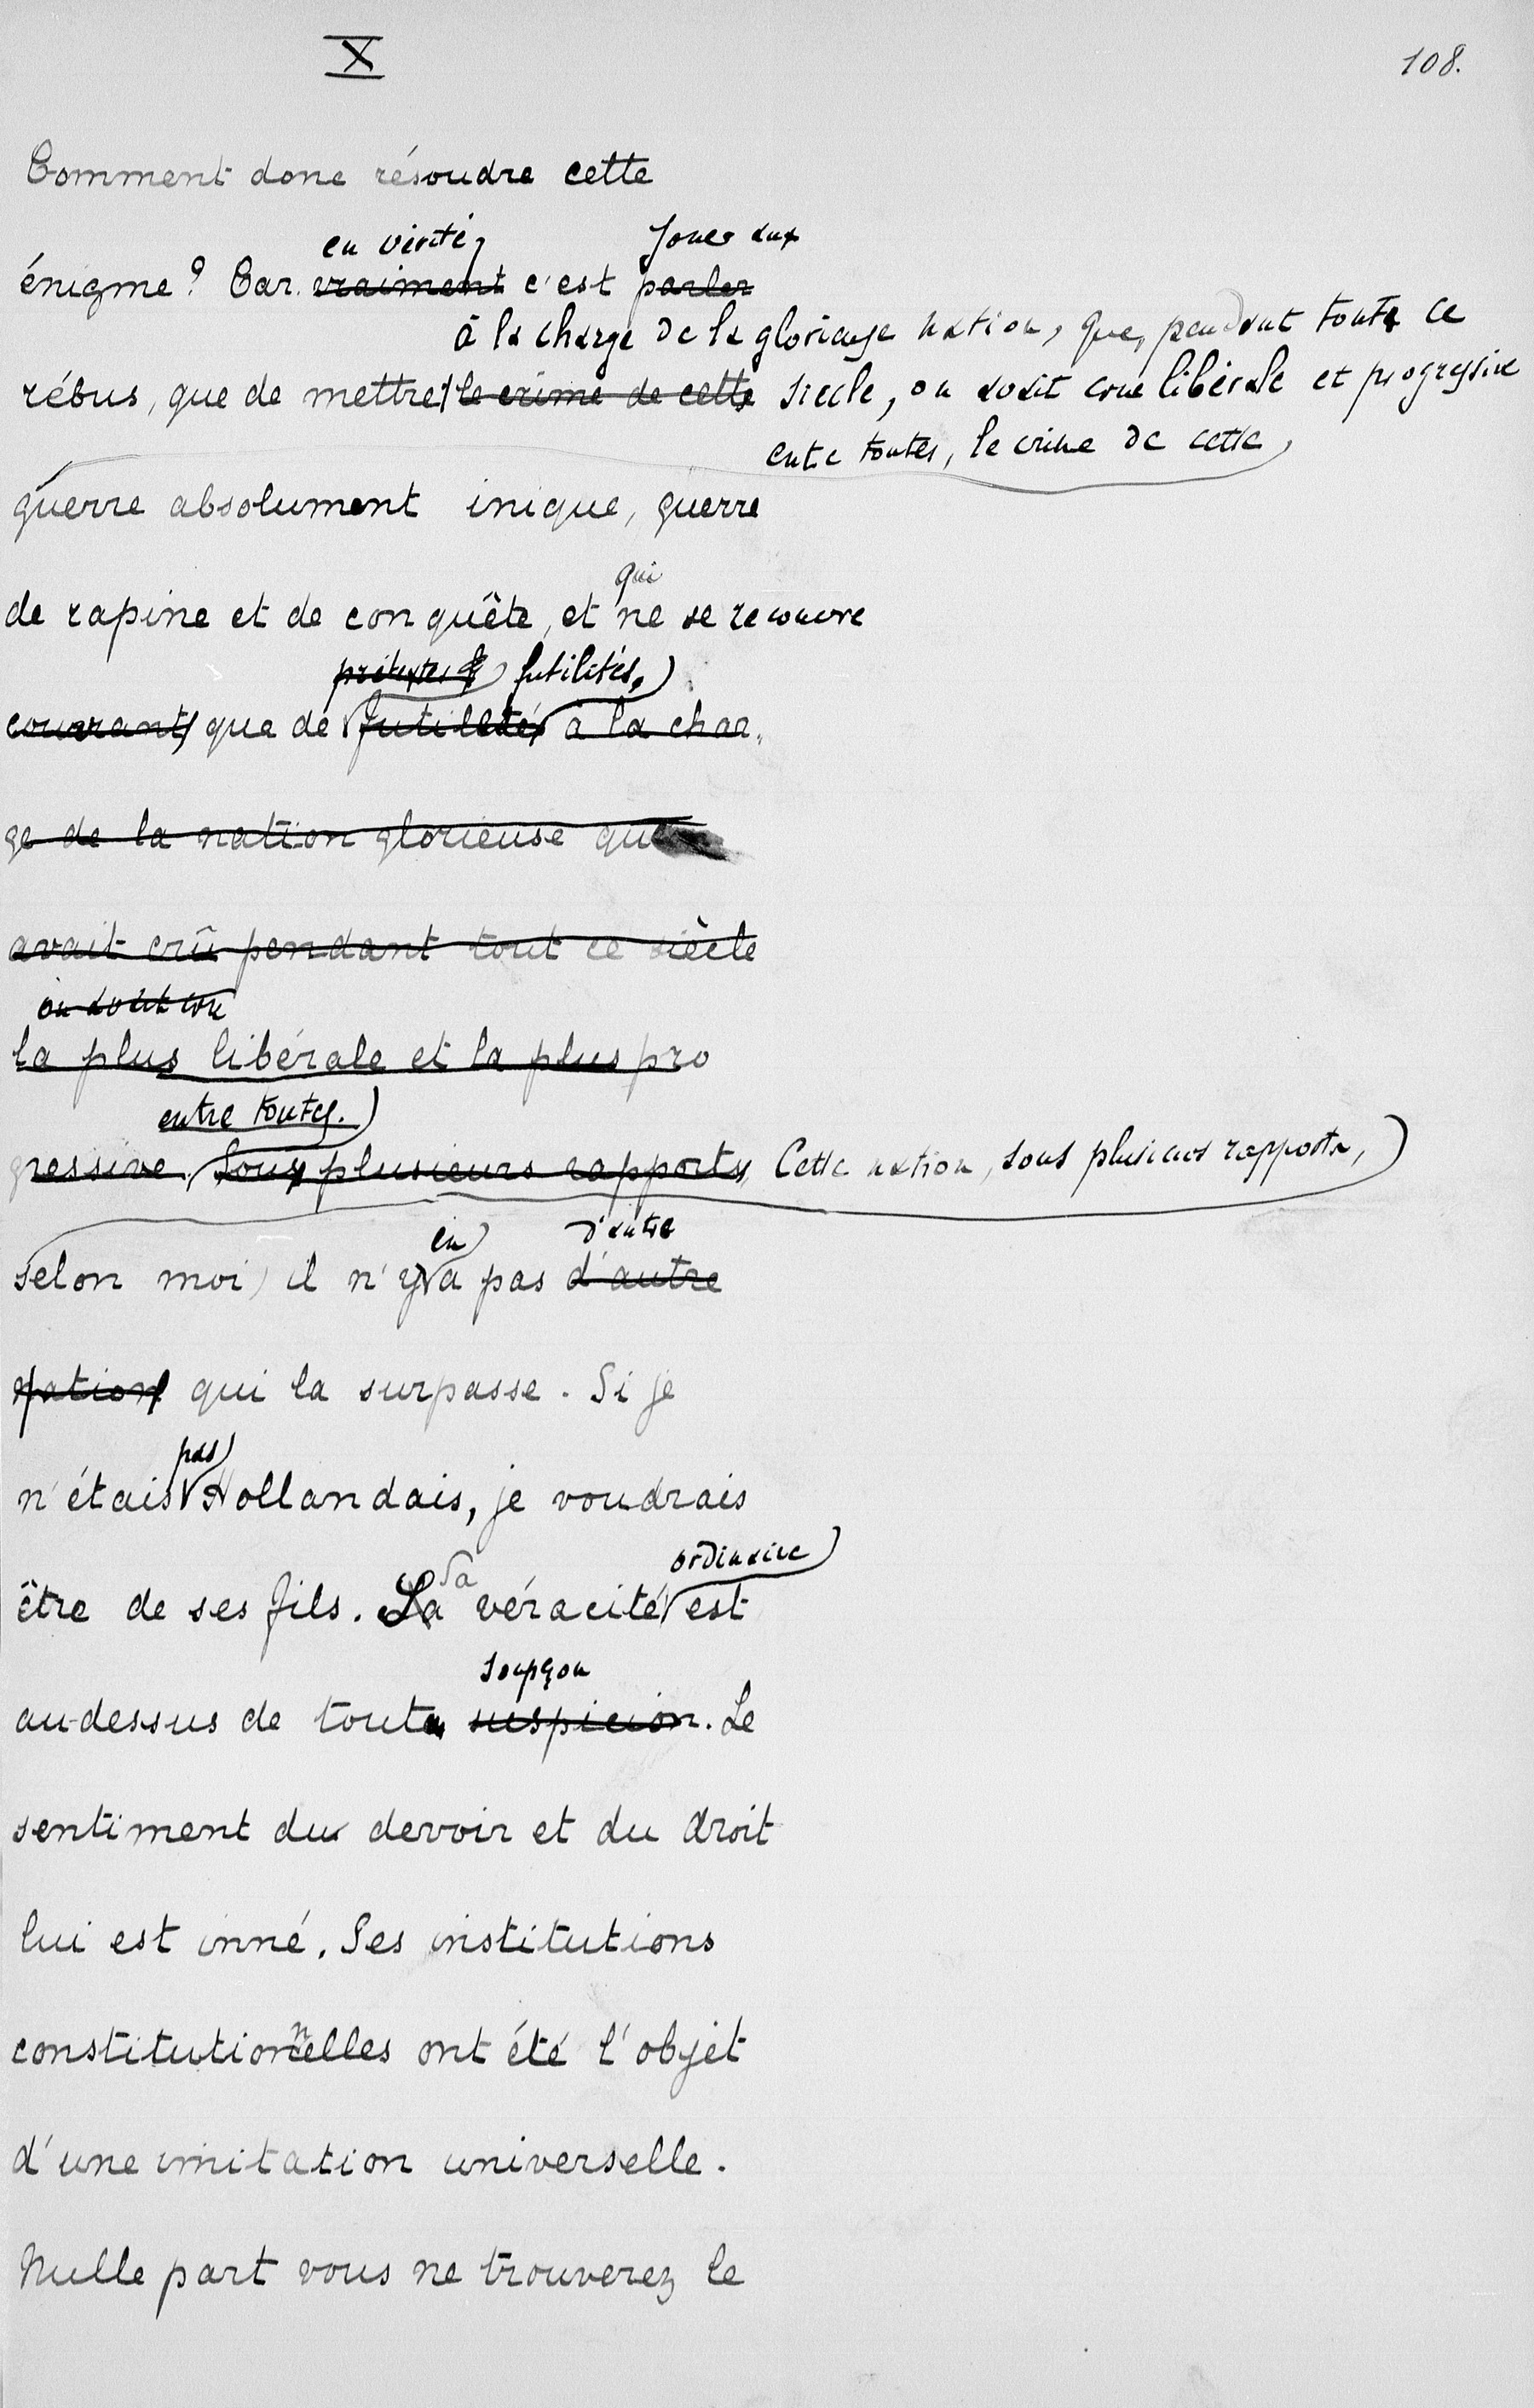 X
108.
Comment donc résoudre cette
en vérité, jouer aux
énigme? Car vraiment c'est parler
à la charge de la glorieuse nation, que, pendant toute ce
rébus, que de mettre le crime de cette siècle, on avait crue libérale et progressive
entre toutes, le crime de cette
guerre absolument inique, guerre
qui
de rapine et de conquête, et ne se recouvre
prétextes futilités,
couvrant que de futilités à la char-
ge de la nation glorieuse que
avait crû pendant tout ce siècle
on avait crue
la plus libérale et la plus pro
entre toutes.
gressive. Sous plusieurs rapports, Cette nation, sous plusieurs rapports,
en d'autre
selon moi, il n'y a pas d'autre
nation qui la surpasse. Si je
pas
n'étais Hollandais, je voudrais
Sa ordinaire
être de ses fils. La véracité est
soupçon
au-dessus de toute suspicion. Le
sentiment du devoir et du droit
lui est inné. Ses institutions
constitutionnelles ont été l'objet
d'une imitation universelle.
Nulle part vous ne trouverez le